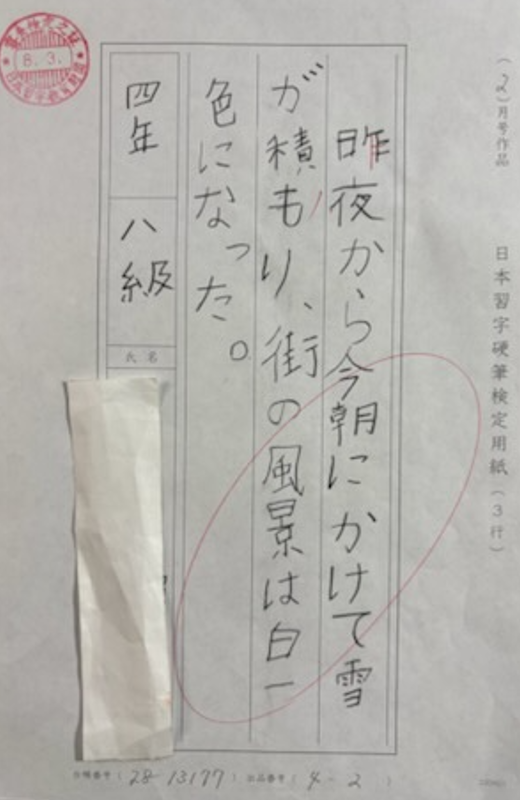 (2)月号作品
日本習字硬筆検定用紙(3行)
昨夜から今朝にかけて雪
が積もり、街の風景は白一
色になった。
四年 八級
氏名
8.3.
(28-13177) 出品番号 (4-2)